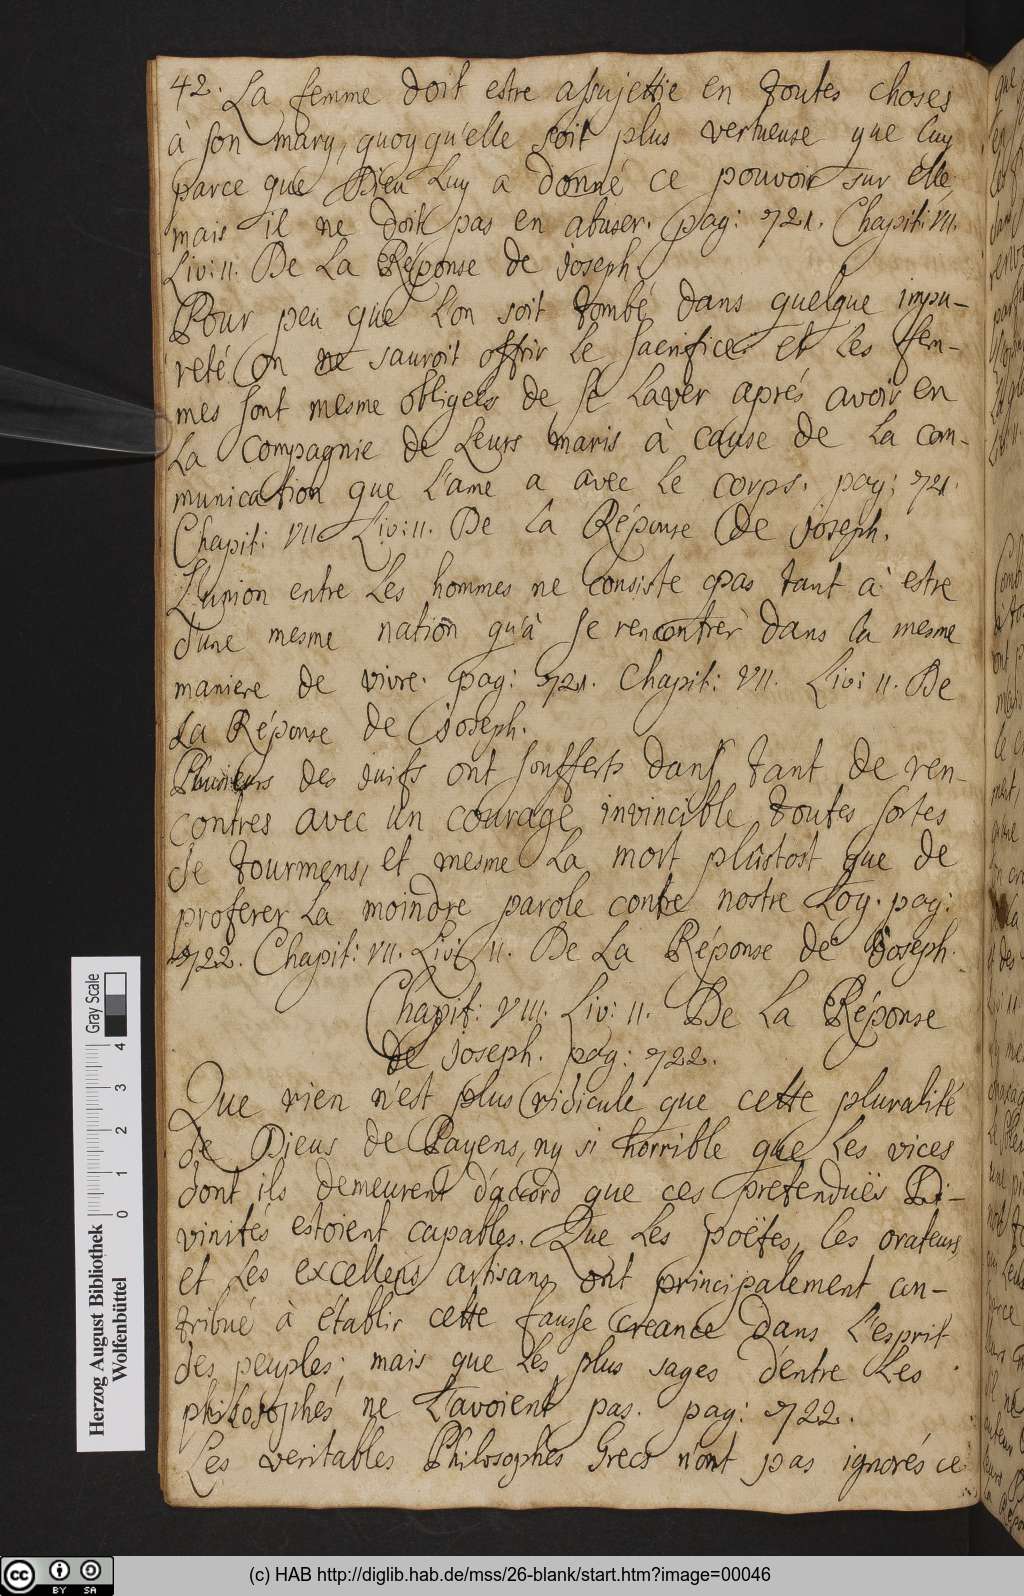 42. La femme doit estre assujettie en toutes choses
à son mary, quoy qu'elle soit plus vertueuse que luy
parce que Dieu Luy a donné ce pouvoir sur elle
mais il ne doit pas en abuser. pag: 721. Chapit: VII.
Liv: II. De La Réponse de Joseph.
Pour peu que l'on soit tombé dans quelque impu-
reté on ne sauroit offrir le sacrifice. et les fem-
mes sont mesme obligees de se Laver aprés avoir en
La compagnie de Leurs maris à cause de La com-
munication que l'ame a avec le corps. pag: 721.
Chapit: VII Liv: II. De La Réponse de Joseph.
L'union entre Les hommes ne consiste pas tant à estre
d'une mesme nation qu'à se rencontrer dans la mesme
maniere de vivre. pag: 721. Chapit: VII. Liv: II. De
La Réponse de Joseph.
Plusieurs des Juifs ont souffert dans tant de ren-
contres avec un courage invincible toutes sortes
de tourmens, et mesme La mort plûstost que de
proferer La moindre parole contre nostre Loy. pag:
722. Chapit: VII. Liv: II. De La Réponse de Joseph.
Chapit: VIII. Liv: II. De La Réponse
de Joseph. pag: 722.
Que rien n'est plus ridicule que cette pluralité
de Dieus de Payens, ny si horrible que Les vices
dont ils demeurent d'accord que ces pretenduës Di-
vinités estoient capables. Que Les poëtes, les orateurs,
et Les excellens artisans ont principalement con-
tribué à établir cette fausse creance dans L'esprit
des peuples; mais que Les plus sages d'entre Les
philosophés ne L'avoient pas. pag: 722.
Les veritables Philosophes Grecs n'ont pas ignorés ce
Herzog August Bibliothek
Wolfenbüttel
0 1 2 3 4
Gray Scale
cc BY SA
(c) HAB http://diglib.hab.de/mss/26-blank/start.htm?image=00046